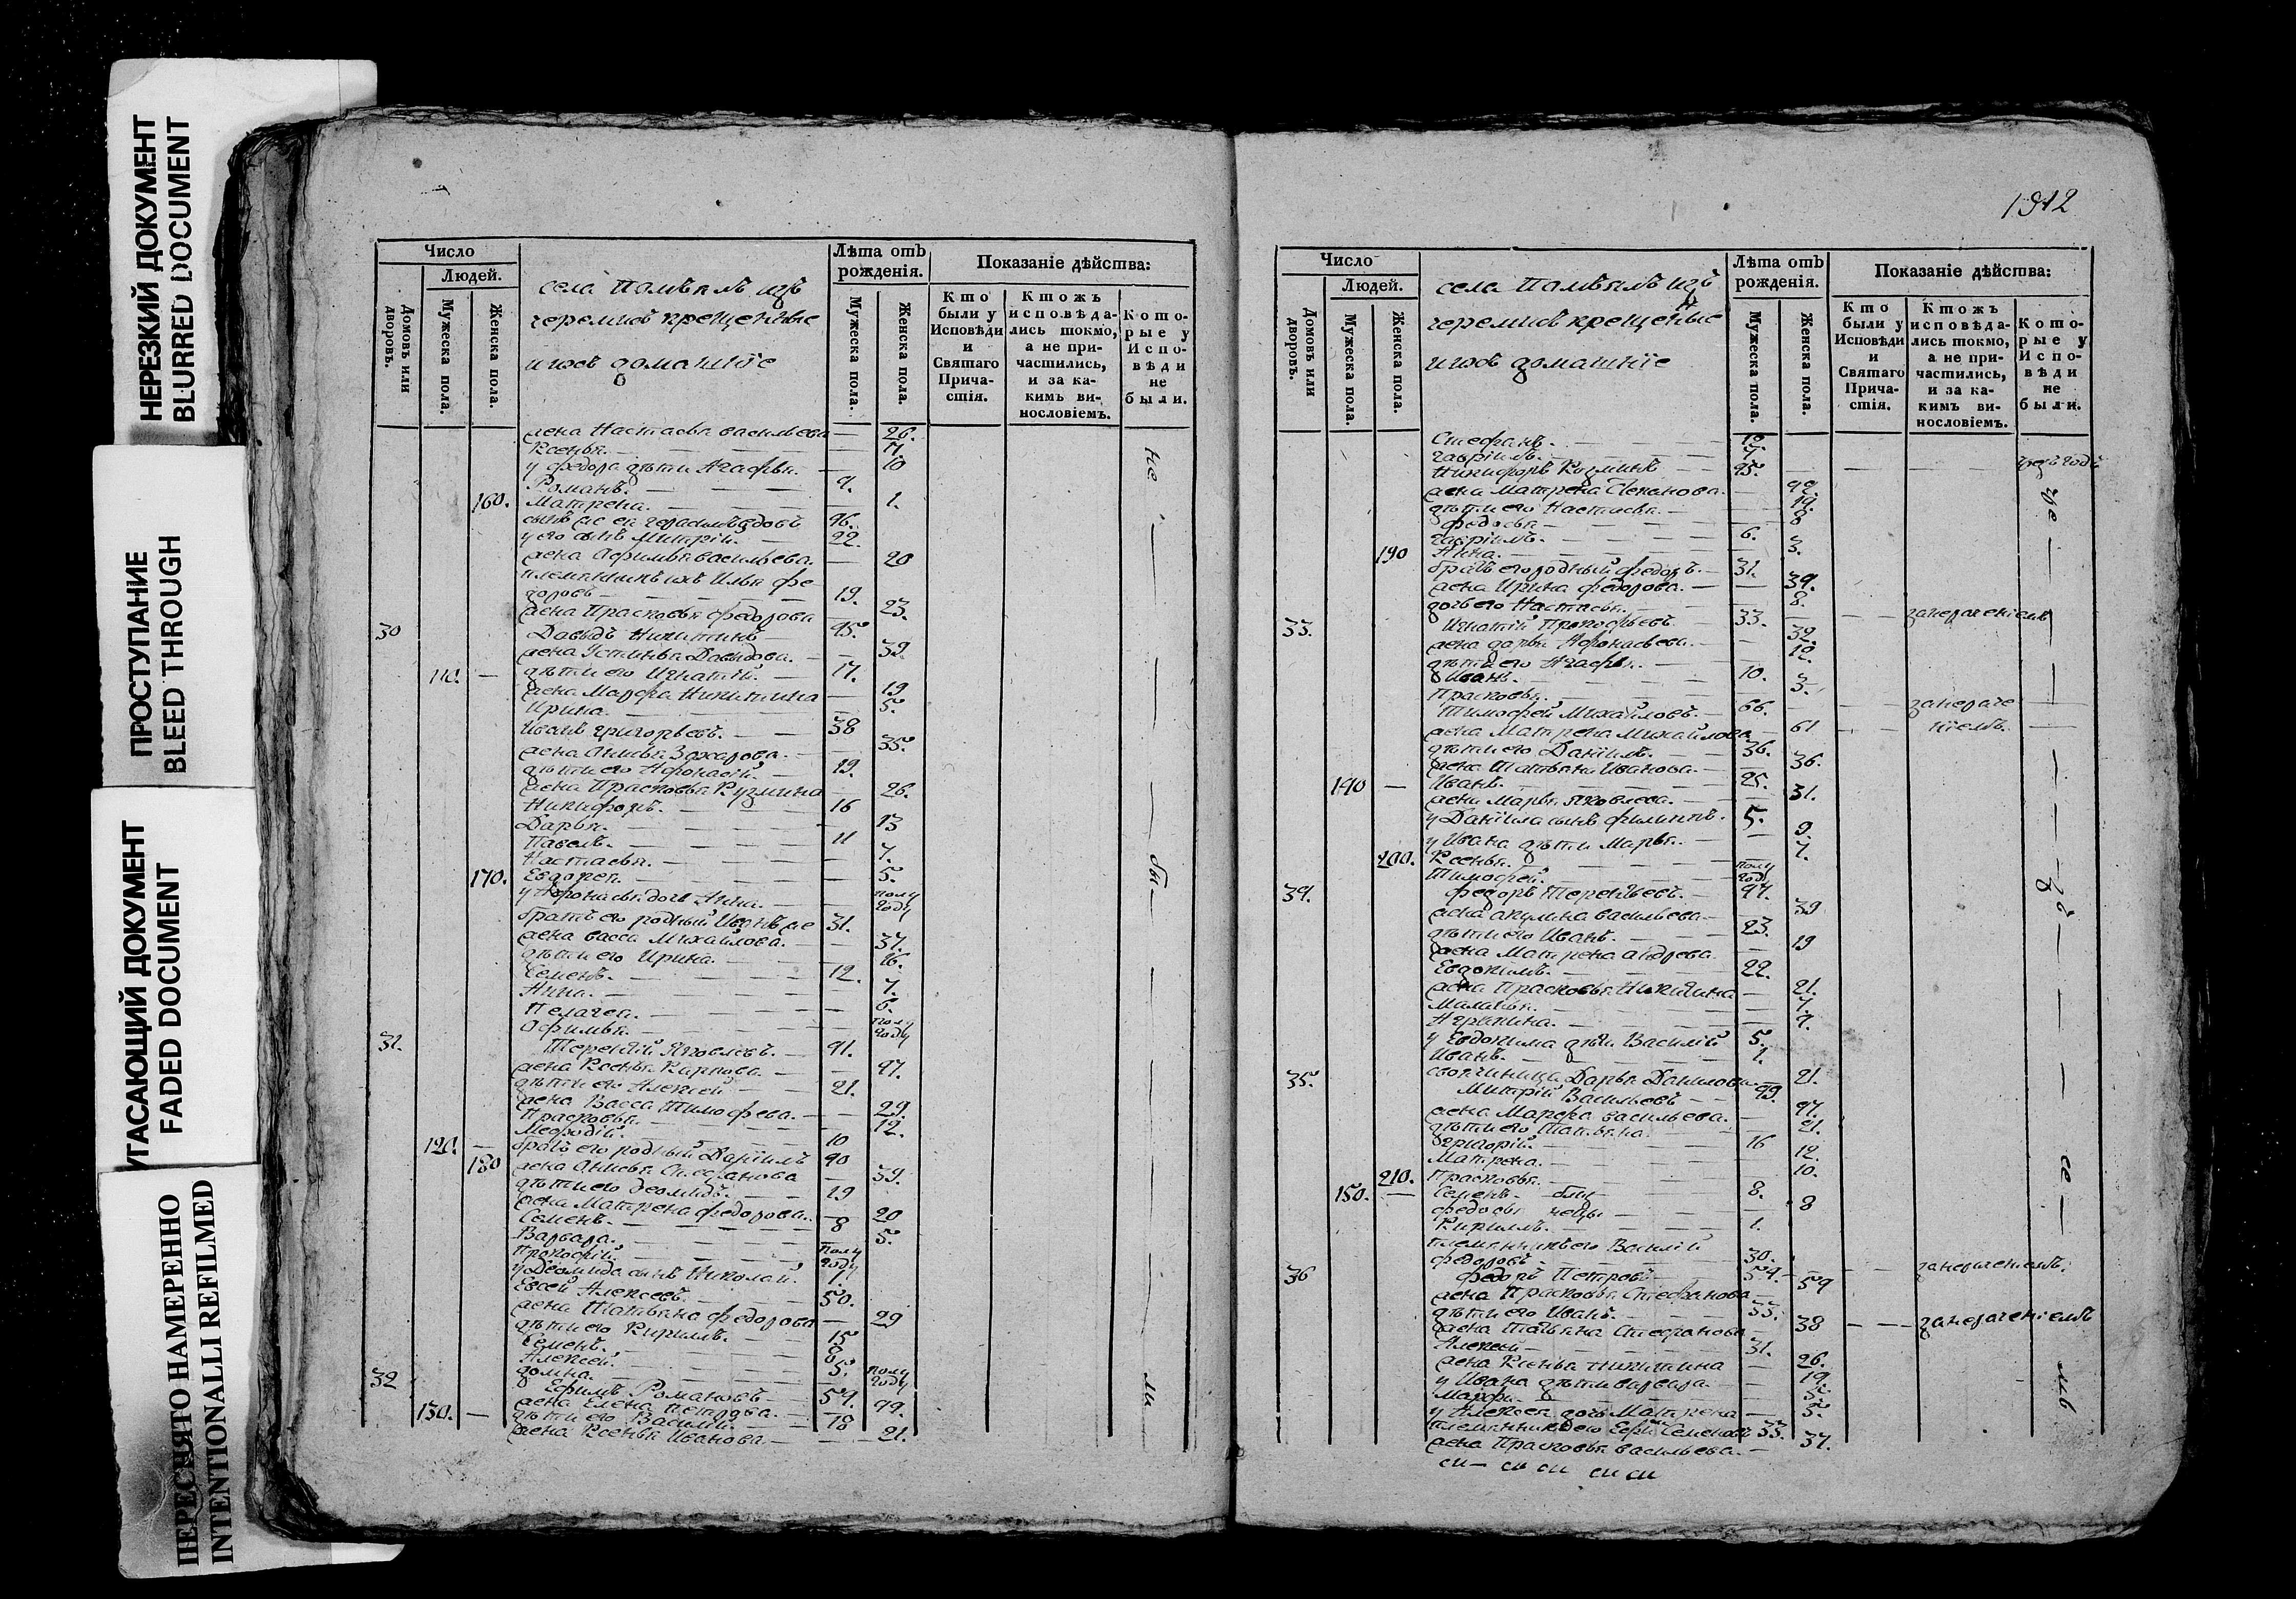 НЕРЕЗКИЙ ДОКУМЕНТ
BLURRED DOCUMENT
ПРОСТУПАНИЕ
BLEED THROUGH
УГАСАЮЩИЙ ДОКУМЕНТ
FADED DOCUMENT
ПЕРЕСНЯТО НАМЕРЕННО
INTENTIONALLI REFILMED
Число
Людей.
Домовъ или дворовъ.
Мужеска пола.
Женска пола.
села
черемисъ крещеныые
ихъ домашнїе
Лѣта отъ рожденїя.
Мужеска пола.
Женска пола.
Показанїе дѣйства:
Кто были у Исповѣди и Святаго Причастїя.
Ктожъ исповѣдались токмо, а не причастились, и за какимъ винословїемъ.
Которые у Исповѣди не были.
жена Настасья васильева — 26.
Ксенья. 7.
у федора дѣти Агафья. 10
Романъ.
160. Матрена. 1.
у его сынъ Митрїй. 22.
жена Афимья васильева. 20
племянникъ ихъ Илья фе
доровъ 19.
жена Прасковья федорова 23.
30 Давыдъ Никитинъ 45.
жена Устинья Давыдова. 39
дѣти его Игнатїй. 17.
жена Марфа Никитина 19
Ирина. 5.
Иванъ григорьевъ. 38
жена Анисья Захарова. 35.
дѣти его Афонасїй. 19.
жена Прасковья Кузмина 26.
Никифоръ. 16
Дарья. 13
Павелъ. 11
Настасья. 7.
170. Евдокея. 5.
у Афонасья дочь Анна. полу году
братъ его родный Иванъ же 31.
жена васса Михайлова. 37.
дѣти его Ирина. 16.
Семенъ. 12.
Анна. 7.
Пелагея. 6.
Афимья. полу году
31. Терентїй Яковлевъ. 41.
жена Ксенья Карпова. 47.
дѣти его Алексей 21.
жена Васса Тимофева. 29.
Прасковья. 12.
Мефодїй. 10
120. братъ его родный Данїилъ 40
180 жена Анисья Стефанова 39.
дѣти его Деомидъ. 19
жена Матрена федорова. 20
Семенъ. 8
Варвара. 5.
Прокофїй. полу году
у Деомида сынъ Николай. 1.
Евсей Алексеевъ. 50.
жена Татьяна федорова 49
дѣти его Кирилъ. 15
Семенъ. 8
Алексей. 5.
домна. полу году
32 Ефимъ Романовъ 54.
жена Елена петрова. 49.
130. дѣти его Василїй. 18
жена Ксенья Иванова. 21.
не
бы
ли
Число
Людей.
Домовъ или дворовъ.
Мужеска пола.
Женска пола.
села
черемисъ крещеныые
ихъ домашнїе
Лѣта отъ рожденїя.
Мужеска пола.
Женска пола.
Показанїе дѣйства:
Кто были у Исповѣди и Святаго Причастїя.
Ктожъ исповѣдались токмо, а не причастились, и за какимъ винословїемъ.
Которые у Исповѣди не были.
Стефанъ. 12.
гаврїилъ.
Никифоръ Козминъ 45.
жена Матрена 42.
дѣти его Настасья. 19.
федосья 8
гаврїилъ. 6.
190 Анна. 3.
братъ его родный федоръ. 31.
жена Ирина федорова. 34.
дочь его Настасья. 8.
33. Игнатїй Прокофьевъ. 33. занерачениемъ
жена дарья Афонасьева. 32.
дѣти его Агафья. 12.
Иванъ. 10.
Прасковья. 3.
Тимофей Михайловъ. 66. занераче
жена Матрена Михайлова 61 нїемъ.
дѣти его Данїилъ. 36.
жена Татьяна Иванова. 36.
140 Иванъ. 25.
жена Марья Яковлева. 31.
у Данїила сынъ филипъ. 5.
у Ивана дѣти Марья. 9.
200. Ксенья. 7.
Тимофей. полу году
34. федоръ Терентьевъ. 47.
жена акулина васильева 39
дѣти его Иванъ. 23.
жена Матрена андрева 19
Евдокимъ. 22.
жена Прасковья Никитина 21.
Маланья. 7.
Агрипина.
у Евдокима дѣти Василїй 5.
Иванъ. 1.
своячиница Дарья Данилова 21.
35. Митрїй Васильевъ 49.
жена Марфа васильева. 47.
дѣти его Татьяна. 21.
григорїй. 16
Матрена. 12.
210. Прасковья. 10.
150. Семенъ. 8.
федосья 8
Кирилъ. 1.
племянникъ его Василїй
федоровъ 30.
36 федоръ Петровъ 54. занерачениемъ.
жена Прасковья Стефанова 59
дѣти его Иванъ. 33.
жена Татьяна Стефанова 38 занерачениемъ
Алексей 31.
жена Ксенья Никитина 26.
у Ивана дѣти варвара. 19.
Марфа 5.
у Алексея дочь Матрена 5.
племянникъ его Сергїй Семеновъ 33.
жена Прасковья васильева. 37.